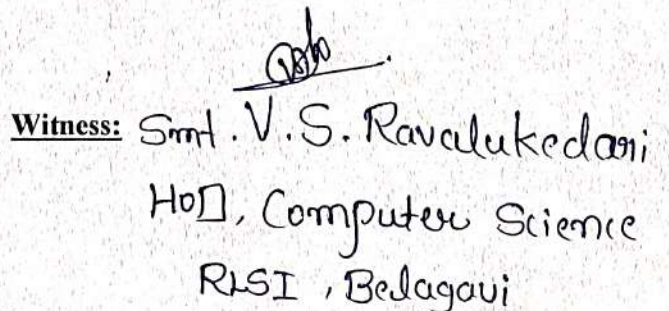 Witness: Smt. V. S. Ravalukedari
HOD, Computer Science
RLSI, Belagavi